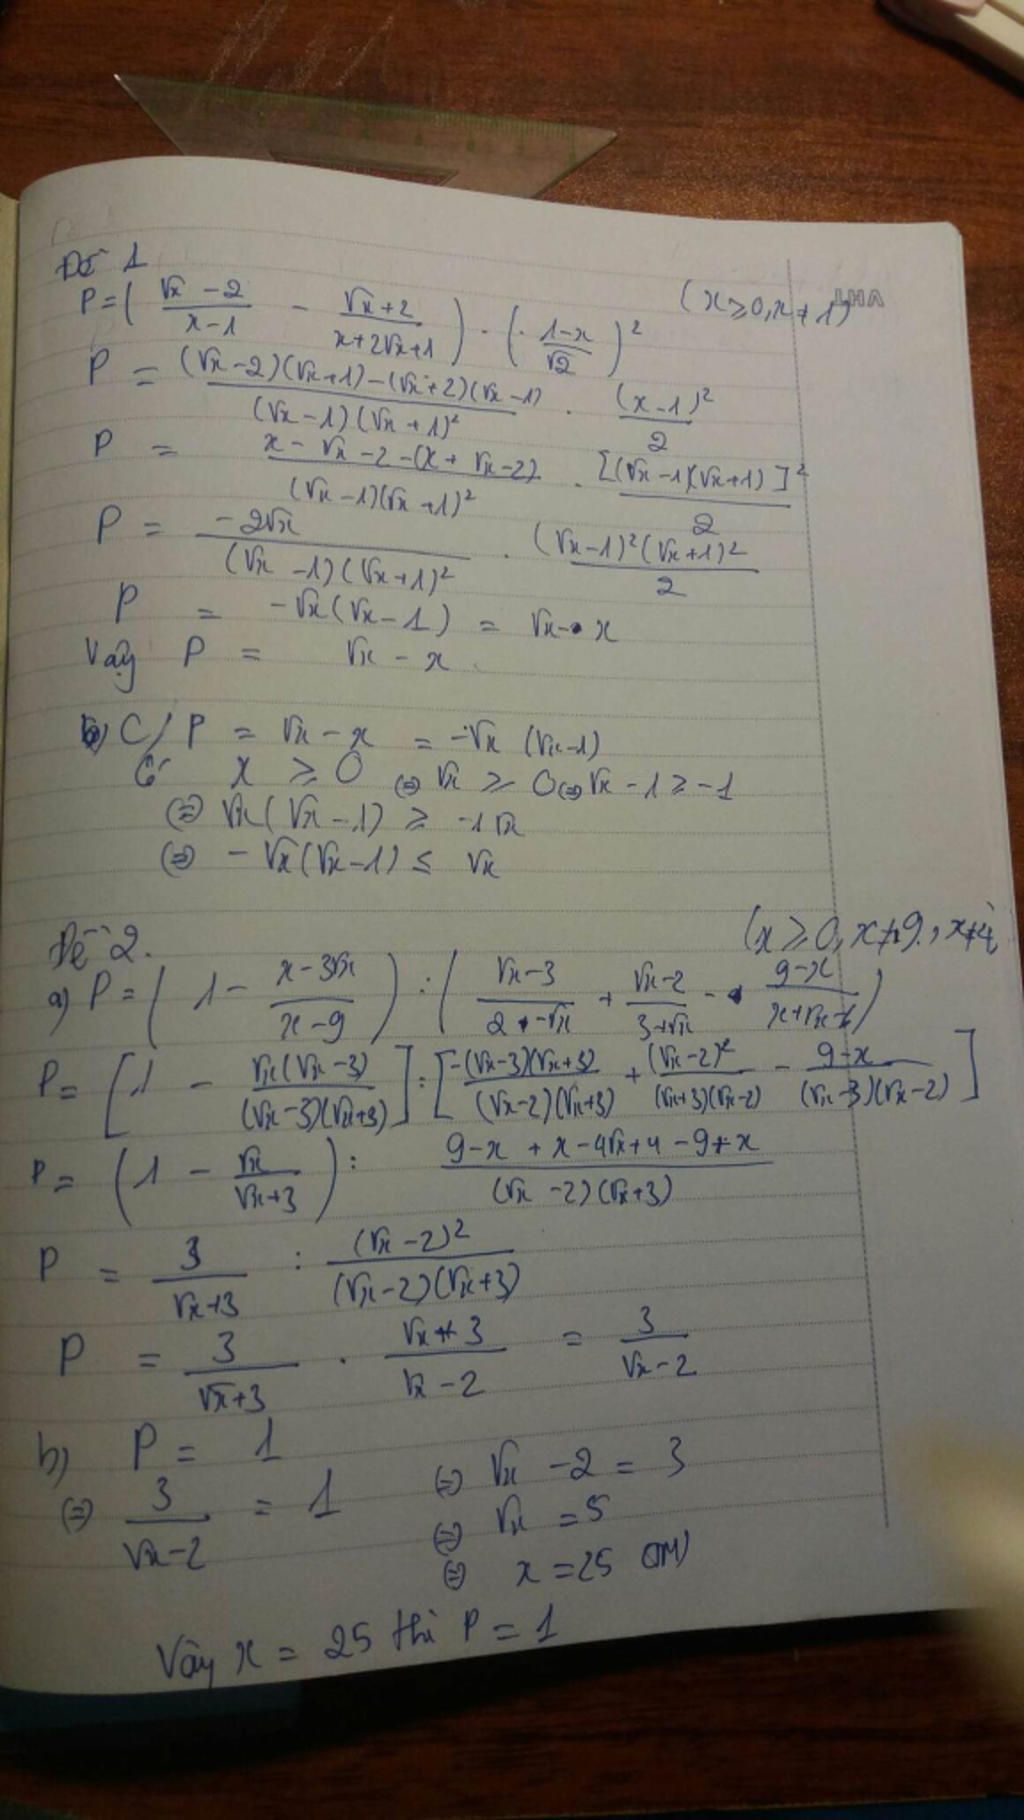 Đề 1
P = ( (√x - 2)/(x - 1) - (√x + 2)/(x + 2√x + 1) ) . ( (1 - x)/√2 )² (x ≥ 0, x ≠ 1)
LHA
P = ((√x - 2)(√x + 1) - (√x + 2)(√x - 1))/((√x - 1)(√x + 1)²) . (x - 1)²/2
P = (x - √x - 2 - (x + √x - 2))/((√x - 1)(√x + 1)²) . [(√x - 1)(√x + 1)]²/2
P = -2√x/((√x - 1)(√x + 1)²) . (√x - 1)²(√x + 1)²/2
P = -√x(√x - 1) = √x - x
Vậy P = √x - x.
C/ P = √x - x = -√x (√x - 1)
Có x ≥ 0 (=) √x ≥ 0 (=) √x - 1 ≥ -1
(=) √x(√x - 1) ≥ -1√x
(=) -√x(√x - 1) ≤ √x
Đề 2. (x ≥ 0, x ≠ 9, x ≠ 4)
a) P = ( 1 - (x - 3√x)/(x - 9) ) : ( (√x - 3)/(2 - √x) + (√x - 2)/(3 + √x) - (9 - x)/(x + √x - 6) )
P = [ 1 - √x(√x - 3)/((√x - 3)(√x + 3)) ] : [ -(√x - 3)(√x + 3)/((√x - 2)(√x + 3)) + (√x - 2)²/((√x + 3)(√x - 2)) - (9 - x)/((√x - 3)(√x - 2)) ]
P = ( 1 - √x/(√x + 3) ) : (9 - x + x - 4√x + 4 - 9 + x)/((√x - 2)(√x + 3))
P = 3/(√x + 3) : (√x - 2)²/((√x - 2)(√x + 3))
P = 3/(√x + 3) . (√x + 3)/(√x - 2) = 3/(√x - 2)
b) P = 1
(=) 3/(√x - 2) = 1 (=) √x - 2 = 3
(=) √x = 5
(=) x = 25 (TM)
Vậy x = 25 thì P = 1